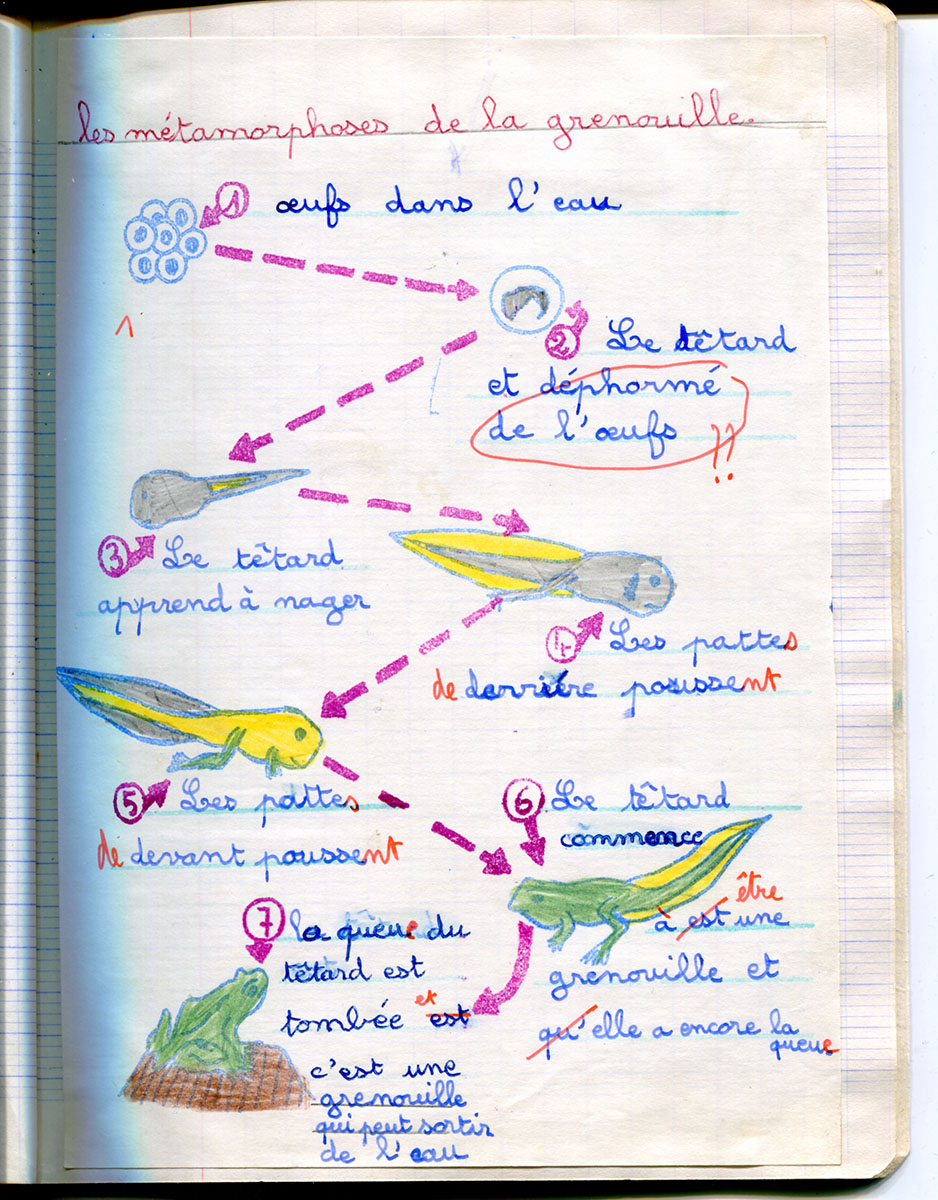 les métamorphoses de la grenouille.
1 œufs dans l'eau
1
2 Le têtard
et déphormé
de l'œufs ??
3 Le têtard
apprend à nager
4 Les pattes
de derrière poussent
5 Les pattes
de devant poussent
6 Le têtard
commence
être
à est une
grenouille et
qu'elle a encore la
queue
7 la queue du
têtard est
et
tombée est
c'est une
grenouille
qui peut sortir
de l'eau